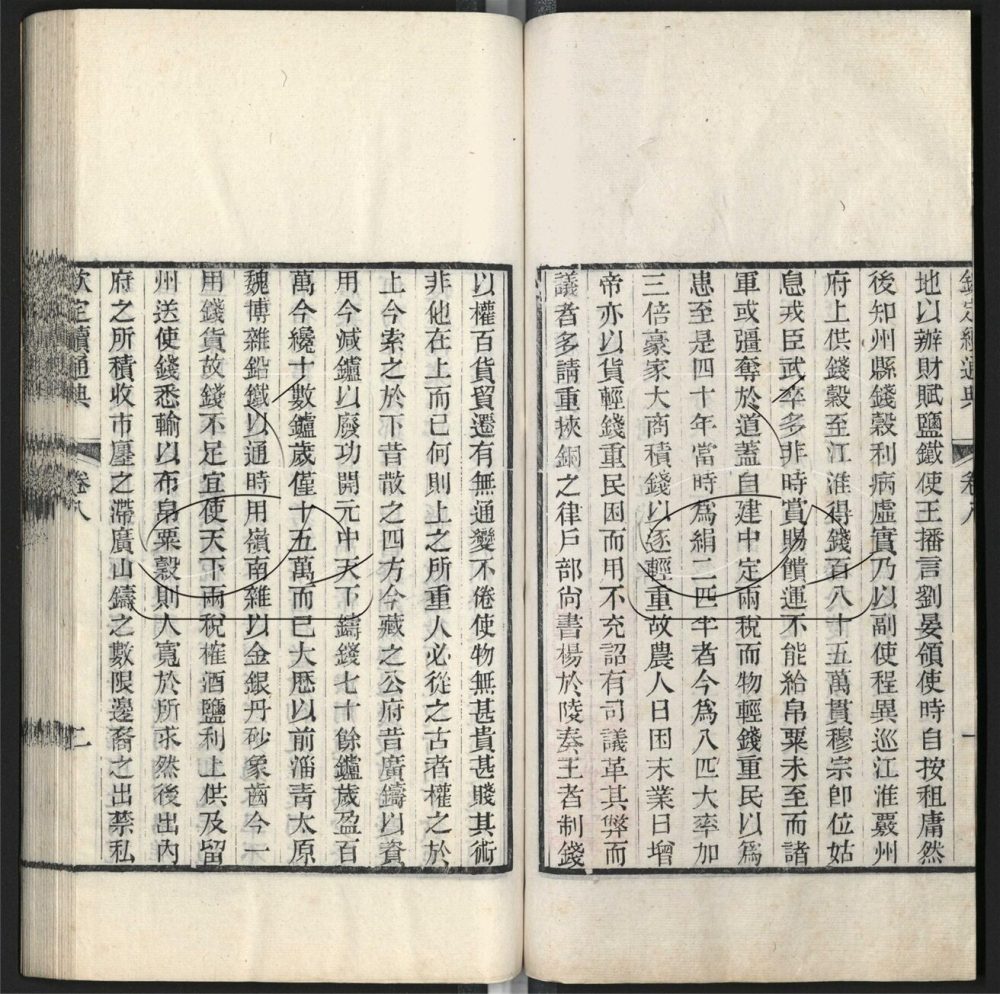 欽定續通典 卷八 一
地以辦財賦鹽鐵使王播言劉晏領使時自按租庸然
後知州縣錢穀利病虛實乃以副使程异巡江淮覈州
府上供錢穀至江淮得錢百八十五萬貫穆宗卽位姑
息戎臣武卒多非時賞賜饋運不能給帛粟未至而諸
軍或彊奪於道蓋自建中定兩稅而物輕錢重民以爲
患至是四十年當時爲絹二匹半者今爲八匹大率加
三倍豪家大商積錢以逐輕重故農人日困末業日增
帝亦以貨輕錢重民困而用不充詔有司議革其弊而
議者多請重挾銅之律戶部尙書楊於陵奏王者制錢
以權百貨貿遷有無通變不倦使物無甚貴甚賤其術
非他在上而已何則上之所重人必從之古者權之於
上今索之於下昔散之四方今藏之公府昔廣鑄以資
用今減鑪以廢功開元中天下鑄錢七十餘鑪歲盈百
萬今纔十數鑪歲僅十五萬而已大厯以前淄靑太原
魏博雜鉛鐵以通時用嶺南雜以金銀丹砂象齒今一
用錢貨故錢不足宜使天下兩稅榷酒鹽利上供及留
州送使錢悉輸以布帛粟穀則人寬於所求然後出內
府之所積收市廛之滯廣山鑄之數限邊裔之出禁私
欽定續通典 卷八 二